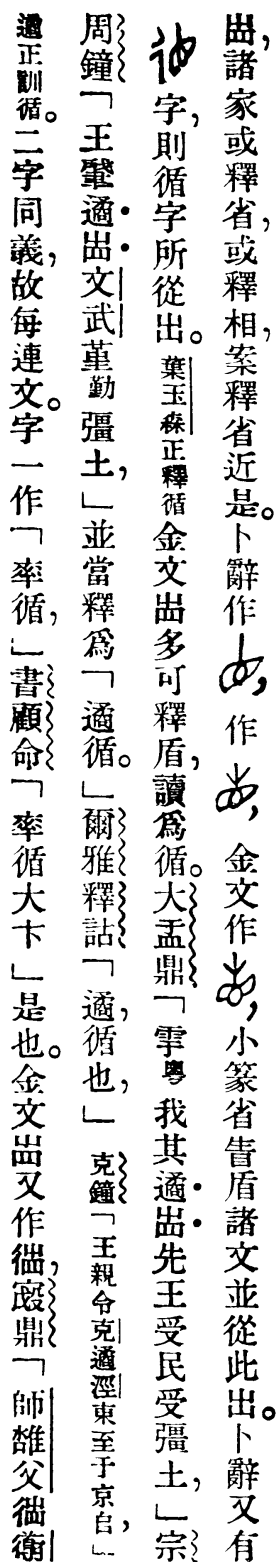 諸家或釋省,或釋相,案釋省近是。卜辭作,作,金文作,小篆省眚盾諸文並從此出。卜辭又有
字,則循字所從出。葉玉森正釋循 金文多可釋盾,讀爲循。大盂鼎「雩粵 我其遹先王受民受彊土,」宗
周鐘「王肇遹文武堇勤彊土,」並當釋爲「遹循。」爾雅釋詁「遹,循也,」克鐘「王親令克遹涇東至于京𠂤,」
遹正訓循。二字同義,故每連文。字一作「率循,」書顧命「率循大卞」是也。金文又作,鼎「師雝父